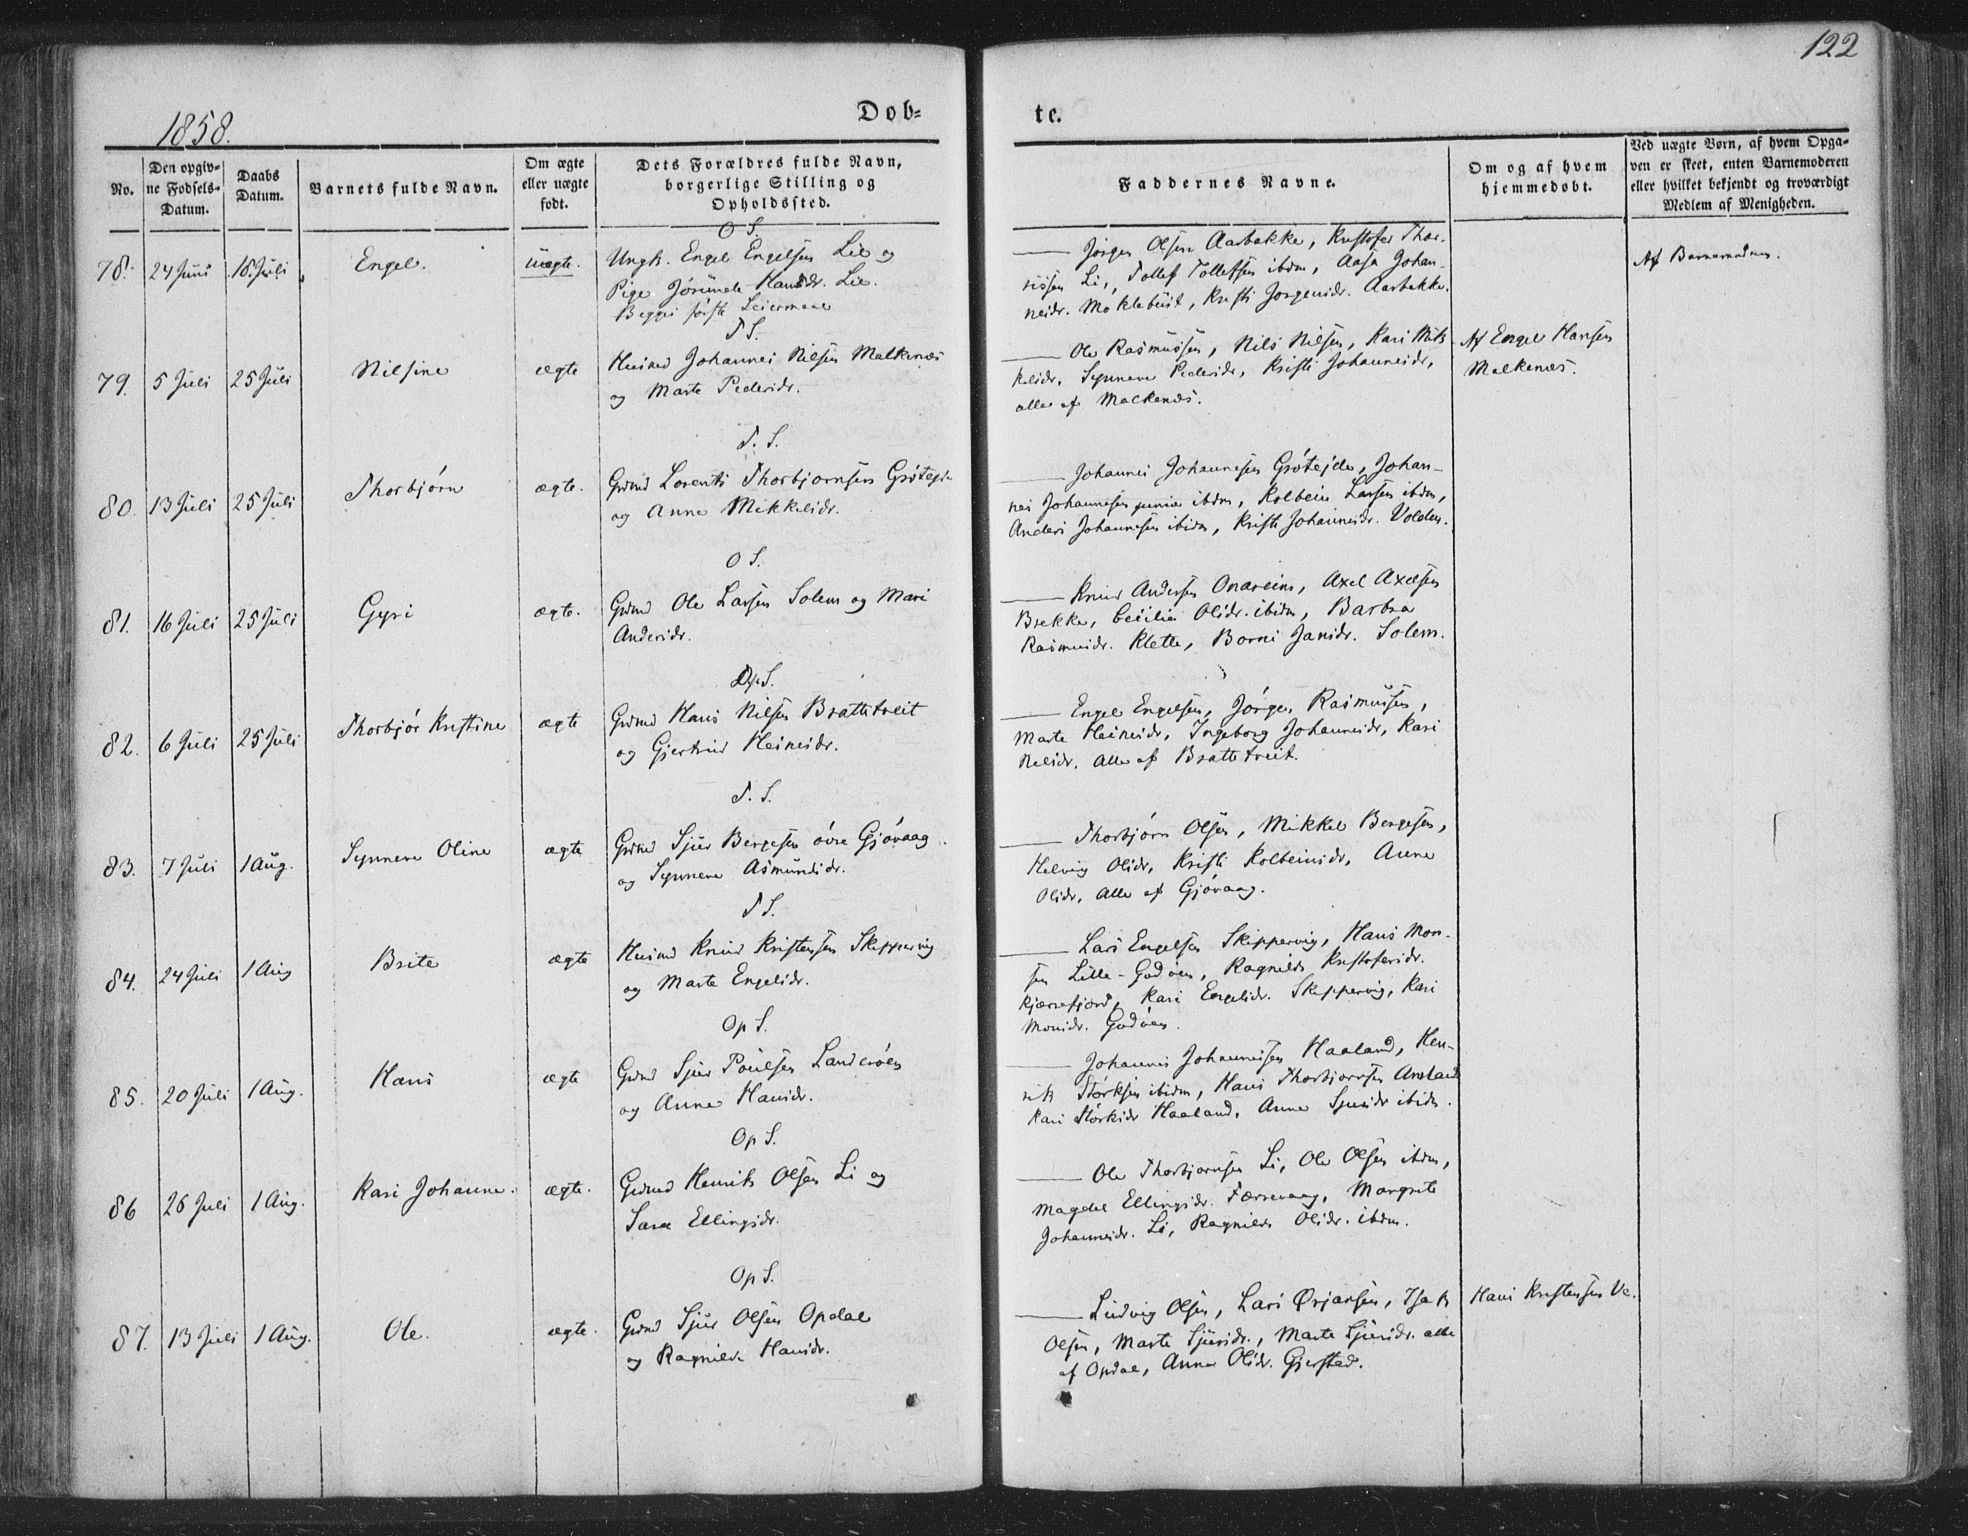 122
1858.
Dob=
te.
No.
Den opgiv-
ne Fødsels-
Datum.
Daabs
Datum.
Barnets fulde Navn.
Om ægte
eller uægte
født.
Dets Forældres fulde Navn,
borgerlige Stilling og
Opholdssted.
Faddernes Navne.
Om og af hvem
hjemmedøbt.
Ved uægte Børn, af hvem Opga-
ven er skeet, enten Barnemoderen
eller hvilket bekjendt og troværdigt
Medlem af Menigheden.
O S.
78. 24 Juni 18 Juli Engel. uægte. Ungk. Engel Engelsen Lie og
Pige Jorunde Hansdr. Lie.
Begges første Leiermaal
Jørgen Olsen Aarbakke, Kristofer Thor-
Li, Tollef Tollefsen ibdm, Aasa Johan-
nesdr. Moklebust, Kristi Jørgensdr. Aarbakke.
Af Barnemodren.
T S.
79. 5 Juli 25 Juli Nilsine ægte Husmd Johannes Nilsen Malkenæs
og Marte Pedersdr.
Ole Rasmussen, Nils Nilsen, Kari Mik-
kelsdr. Synneve Pedersdr, Kristi Johannesdr,
alle af Malkenæs.
Af Engel Hansen
Malkenæs.
T. S.
80. 13 Juli 25 Juli Thorbjørn ægte. Grdmd Lorents Thorbjørnsen
og Anne Mikkelsdr.
Johannes Johannesen Grøtejde, Johan-
nes Johannesen junior ibdm, Kolbein Larsen ibdm,
Anders Johannesen ibidm, Kristi Johannesdr. Volden.
O S.
81. 16 Juli 25 Juli Gyri ægte. Grdmd Ole Larsen Solem og Mari
Andersdr.
Knud Andersen Onareim, Axel Axelsen
Brekke, Cecilia Olsdr. ibidm, Barbra
Rasmusdr. Klette, Borni Jansdr. Solem.
Op S.
82. 6 Juli 25 Juli Thorbjør Kristine ægte Grdmd Hans Nilsen Brattetveit
og Gjertrud Heinesdr.
Engel Engelsen, Jørgen Rasmussen,
Marte Heinesdr, Ingeborg Johannesdr, Kari
Nilsdr. alle af Brattetveit.
T. S.
83. 7 Juli 1 Aug. Synneve Oline ægte Grdmd Sjur Bergesen øvre Gjøvaag
og Synneve Asmundsdr.
Thorbjørn Olsen, Mikkel Bergesen,
Helvig Olsdr, Kristi Kolbeinsdr, Anne
Olsdr, alle af Gjøvaag.
T S.
84. 24 Juli 1 Aug Brite ægte Husmd Knud Kristensen Skippervig
og Marte Engelsdr.
Lars Engelsen Skippervig, Hans Mon-
sen Lille-Godøen, Ragnilde Kristofersdr.
Kjærrefjord, Kari Engelsdr. Skippervig, Kari
Monsdr. Godøen.
Op S.
85. 20 Juli 1 Aug. Hans ægte Grdmd Sjur Poulsen Landerøen
og Anne Hansdr.
Johannes Johannessen Haaland, Hen-
rik Størksen ibidm, Hans Thorbjørnsen Arsland
Kari Størksdr Haaland, Anne Sjursdr ibidm.
Op S.
86 26 Juli 1 Aug. Kari Johanne. ægte. Grdmd Henrik Olsen Li og
Sara Ellingsdr.
Ole Thorbjørnsen Li, Ole Olsen ibdm,
Magdel Ellingsdr. Færrevaag, Margrete
Johannesdr. Li, Ragnilde Olsdr. ibdm.
Op S.
87. 13 Juli 1 Aug. Ole. ægte. Grdmd Sjur Olsen Opdal
og Ragnilde Hansdr.
Ludvig Olsen, Lars Ørjansen, Isak
Olsen, Marte Sjursdr., Marte Sjursdr. alle
af Opdal, Anne Olsdr. Gjerstad.
Hans Kristensen Ve.